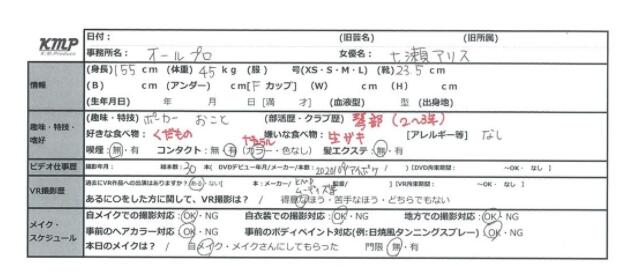 KMP
K.M.Produce
日付: (旧芸名) (旧所属)
事務所名: オールプロ 女優名: 七瀬アリス
情報
(身長)155 cm (体重)45 kg (服) 号(XS・S・M・L) (靴)23.5 cm
(B) cm (アンダー) cm[Fカップ] (W) cm (H) cm
(生年月日) 年 月 日【満 才】 (血液型) 型 (出身地)
趣味・特技・嗜好
(趣味・特技) ポーカー おこと (部活歴・クラブ歴) 琴部(2~3年)
好きな食べ物: くだもの 嫌いな食べ物: 生ガキ [アレルギー等] なし
喫煙: 無・有 コンタクト: 無・有 (カラー・色なし) 髪エクステ: 無・有
ビデオ仕事歴
撮影年月: 総本数: 30 本( DVDデビュー年月/メーカー/本数:
VR撮影歴
過去にVR作品への出演はありますか? (ある・ない) 本:メーカー/ KMP
あるに〇をした方に関して、VR撮影は? / 得意なほう・苦手なほう・どちらでもない
メイク・スケジュール
自メイクでの撮影対応: OK・NG 自衣装での撮影対応: OK・NG 地方での撮影対応: OK・NG
事前のヘアカラー対応: OK・NG 事前のボディペイント対応(例:日焼風タンニングスプレー) OK・NG
本日のメイクは? / 自メイク・メイクさんにしてもらった 門限 無・有